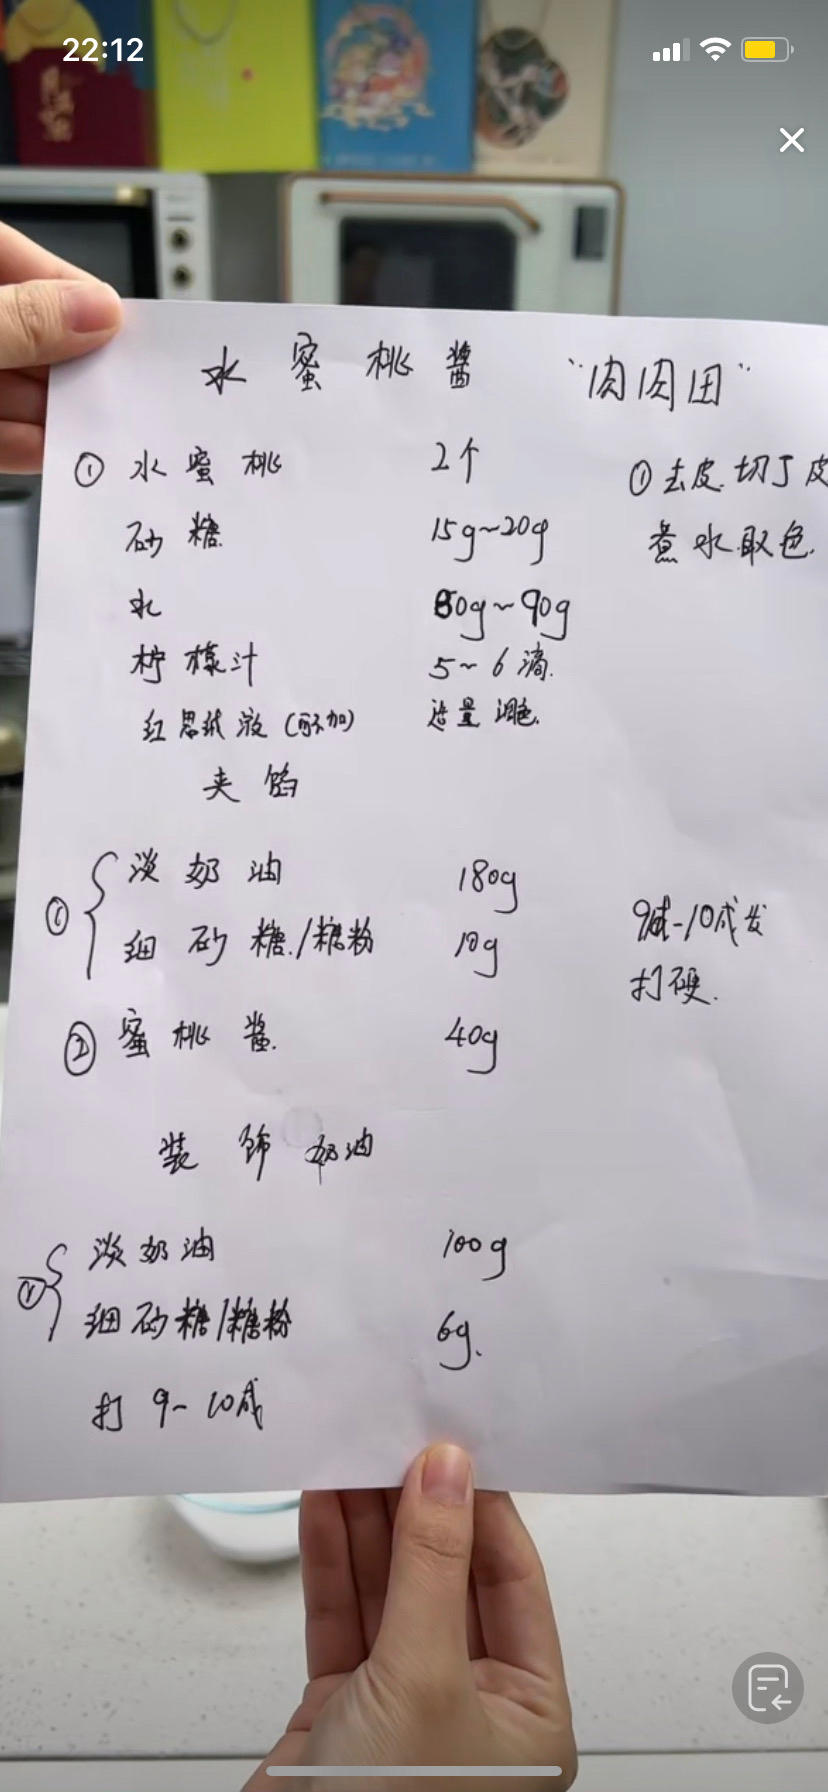 22:12
水蜜桃酱 "肉肉田"
① 水蜜桃 2个 ①去皮.切丁 皮
砂糖 15g~20g 煮水取色.
水 80g~90g
柠檬汁 5~6滴.
红思绒液(可不加) 适量调色.
夹馅
① 淡奶油 180g 9成-10成发
细砂糖/糖粉 10g 打硬.
② 蜜桃酱. 40g
装饰奶油
① 淡奶油 100g
细砂糖/糖粉 6g.
打9~10成